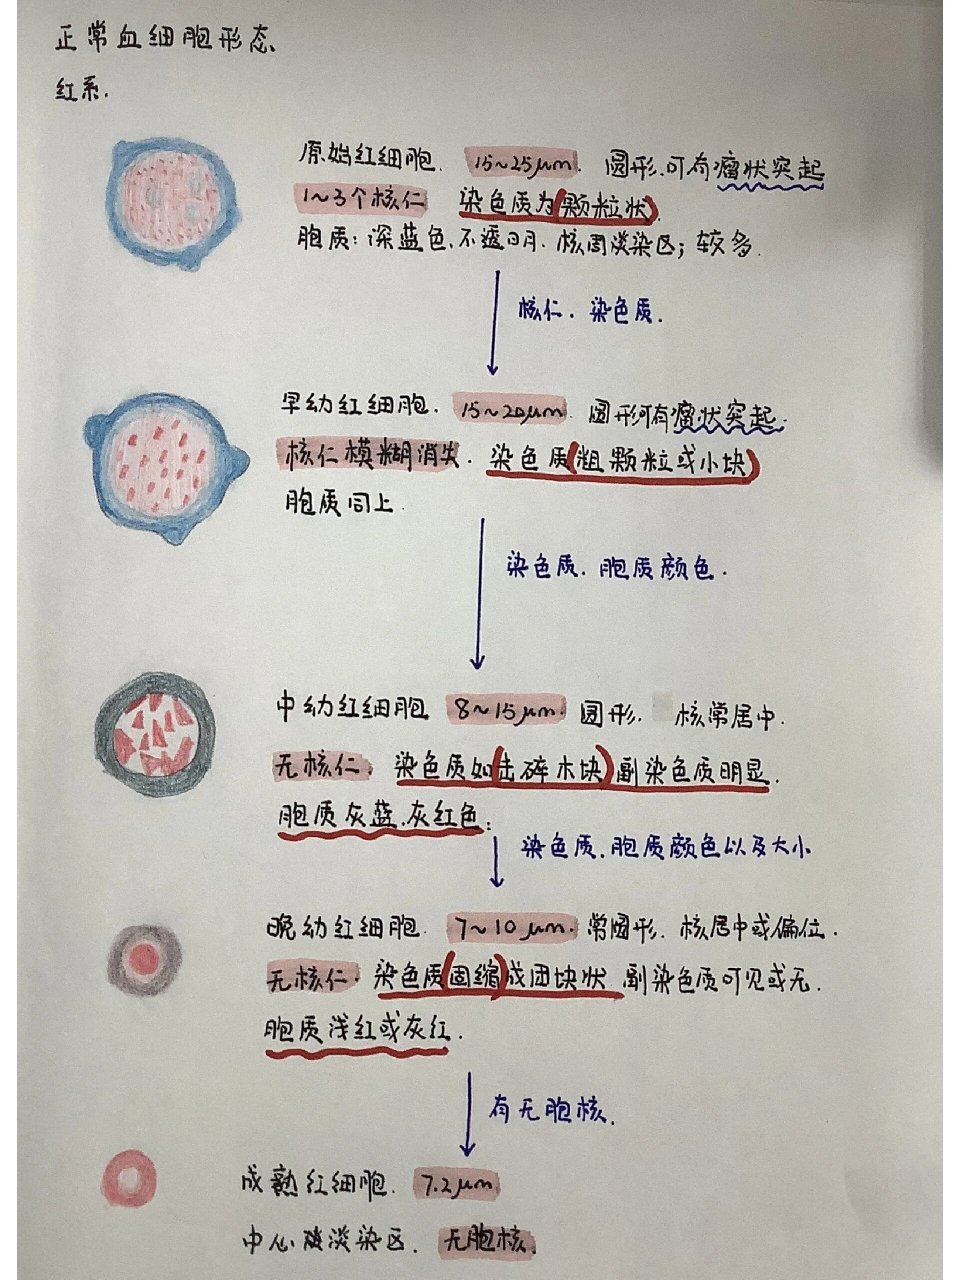 正常血细胞形态
红系.
原始红细胞. 15~25μm. 圆形.可有瘤状突起
1~3个核仁 染色质为(颗粒状).
胞质:深蓝色.不透明.核周淡染区;较多.
核仁.染色质.
早幼红细胞. 15~20μm. 圆形可有瘤状突起.
核仁模糊消失. 染色质(粗颗粒或小块)
胞质同上.
染色质.胞质颜色.
中幼红细胞 8~15μm. 圆形. 核常居中.
无核仁. 染色质如(击碎木块)副染色质明显.
胞质灰蓝.灰红色;
染色质.胞质颜色以及大小
晚幼红细胞. 7~10μm. 常圆形.核居中或偏位.
无核仁. 染色质(固缩)成团块状 副染色质可见或无.
胞质浅红或灰红.
有无胞核.
成熟红细胞. 7.2μm
中心淡染区. 无胞核.